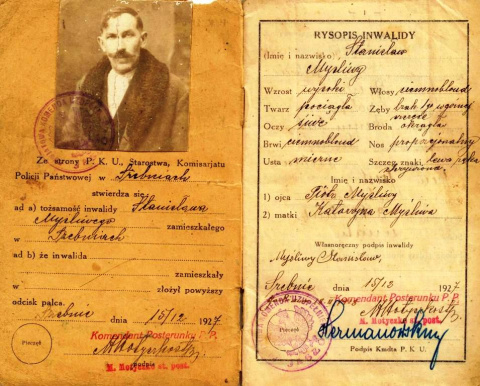 Ze strony P. K. U., Starostwa, Komisarjatu
Policji Państwowej w Trzebniach
stwierdza się
ad a) tożsamość inwalidy Stanisława
Myśliwego zamieszkałego
w Trzebniach
ad b) że inwalida
zamieszkały
w złożył powyższy
odcisk palca.
dnia 15/12 1927
Komendant Posterunku P. P.
Pieczęć
M. Motyenko st. post.
RYSOPIS INWALIDY
(Imię i nazwisko Stanisław
Myśliwy
Wzrost wysoki Włosy ciemnoblond
Twarz pociągła Zęby brak 1go w górnej
Oczy siwe Broda okrągła
Brwi ciemnoblond Nos proporcjonalny
Usta mierne Szczeg. znaki lewa
skrzywiona
Imię i nazwisko
1) ojca Piotr Myśliwy
2) matki Katarzyna Myśliwa
Własnoręczny podpis inwalidy
Myśliwy Stanisław
dnia 15/12 1927
Komendant Posterunku P. P.
M. Motyenko st. post.
Pieczęć
Hermanowski
Podpis Kmdta P. K. U.